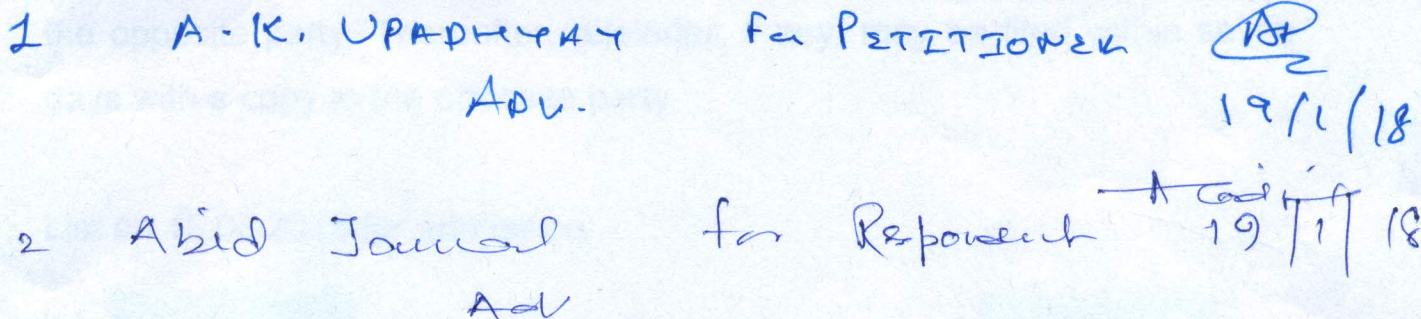 1 A.K. UPADHYAY For PETITIONER
ADV. 19/1/18
2 Abid Jamal for Respondent 19/1/18
Adv